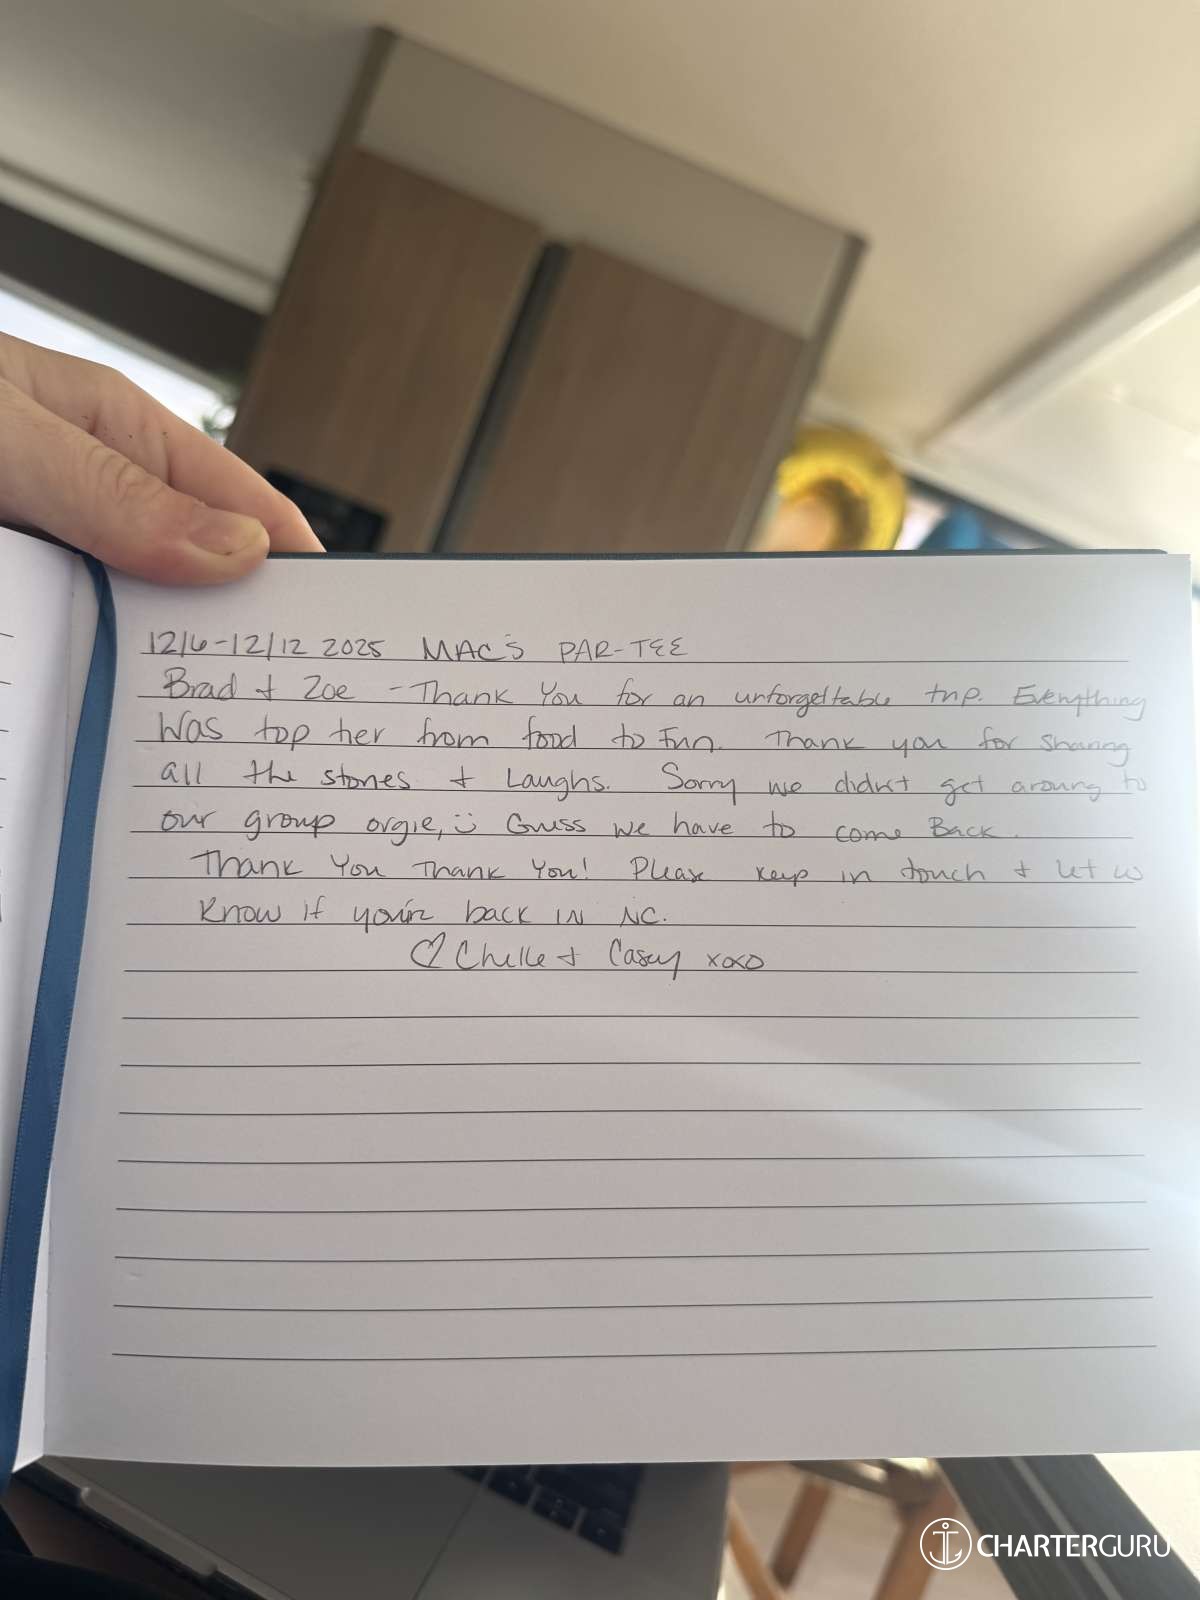 12/6-12/12 2025 MAC'S PAR-TEE
Brad + Zoe - Thank You for an unforgettable trip. Everything
Was top tier from food to Fun. Thank you for sharing
all the stories + Laughs. Sorry we didn't get around to
our group orgie, Guess we have to come Back.
Thank You Thank You! Please keep in touch + let us
Know if you're back IN NC.
♡ Chelle + Casey xoxo
CHARTERGURU